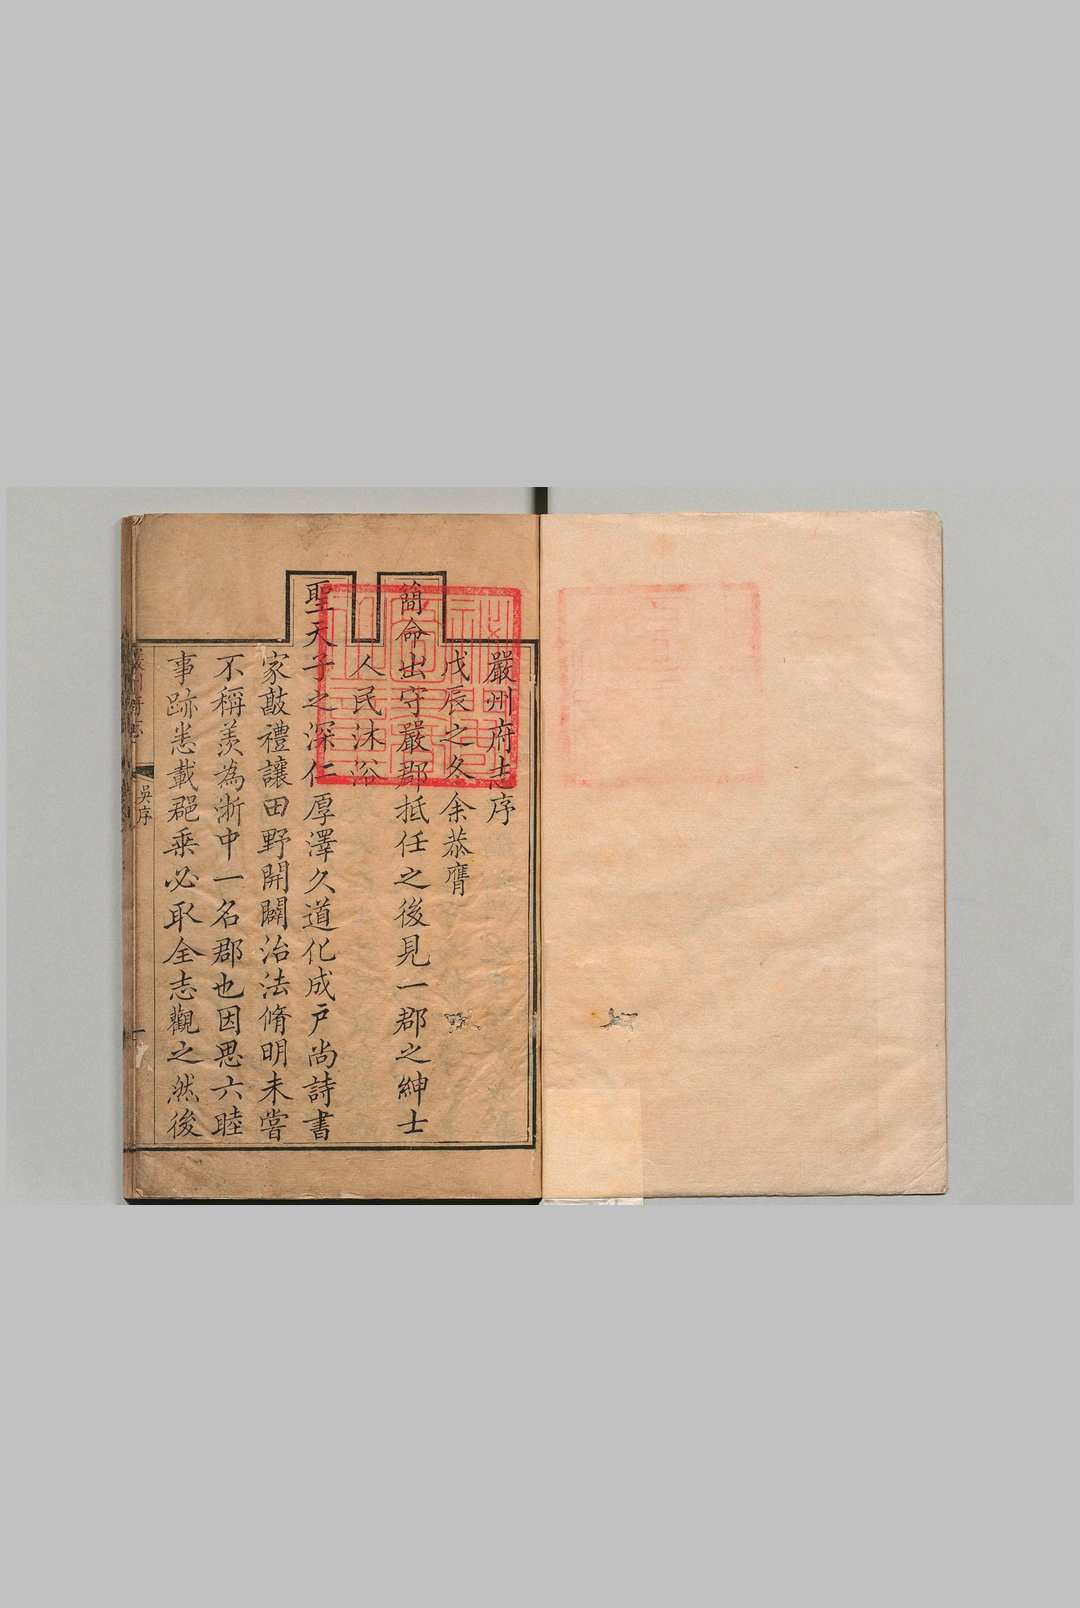 嚴州府志序
戊辰之冬余恭膺
簡命出守嚴郡抵任之後見一郡之紳士
人民沐浴
聖天子之深仁厚澤久道化成戸尚詩書
家敲禮讓田野開闢治法脩明未嘗
不稱羨為浙中一名郡也因思六睦
事跡悉載郡乘必取全志觀之然後
吳序
一